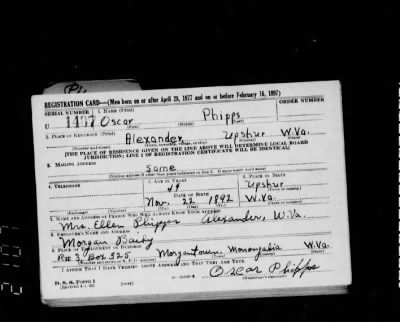 REGISTRATION CARD—(Men born on or after April 28, 1877 and on or before February 16, 1897)
SERIAL NUMBER 1. NAME (Print) ORDER NUMBER
U 1477 Oscar Phipps
(First) (Middle) (Last)
2. PLACE OF RESIDENCE (Print)
Alexander Upshur W.Va.
(Number and street) (Town, township, village, or city) (County) (State)
[THE PLACE OF RESIDENCE GIVEN ON THE LINE ABOVE WILL DETERMINE LOCAL BOARD
JURISDICTION; LINE 2 OF REGISTRATION CERTIFICATE WILL BE IDENTICAL]
3. MAILING ADDRESS
Same
(Mailing address if other than place indicated on line 2. If same insert word same)
4. TELEPHONE 5. AGE IN YEARS 6. PLACE OF BIRTH
49 Upshur
DATE OF BIRTH (Town or county)
Nov. 22 1892 W.Va.
(Exchange) (Number) (Mo.) (Day) (Yr.) (State or country)
7. NAME AND ADDRESS OF PERSON WHO WILL ALWAYS KNOW YOUR ADDRESS
Mrs. Ellen Phipps Alexander, W.Va.
8. EMPLOYER'S NAME AND ADDRESS
Morgan
9. PLACE OF EMPLOYMENT OR BUSINESS
Rt #3 Box 325 Morgantown Monongalia W.Va.
(Number and street or R. F. D. number) (Town) (County) (State)
I AFFIRM THAT I HAVE VERIFIED ABOVE ANSWERS AND THAT THEY ARE TRUE.
D. S. S. Form 1
(Revised 4-1-42) (over)
Oscar Phipps
(Registrant's signature)